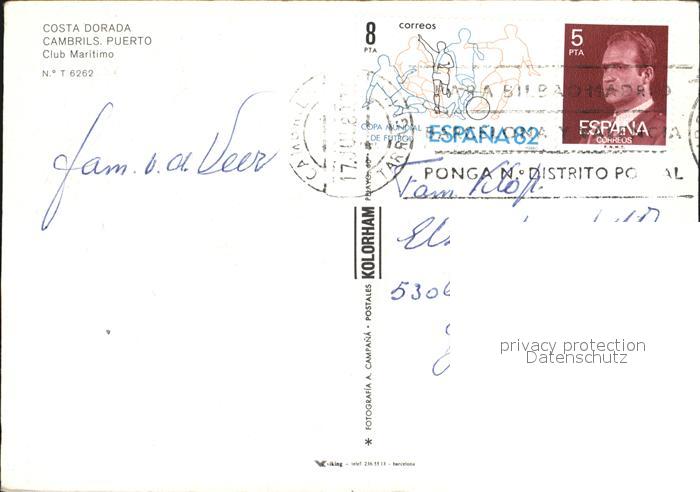 COSTA DORADA
CAMBRILS. PUERTO
Club Marítimo
N.º T 6262
Fam. v. d. Veer
8
PTA
correos
COPA MUNDIAL
DE FUTBOL
ESPAÑA 82
5
PTA
ESPAÑA
CORREOS
PARA BILBAO MADRID
BARCELONA Y VALENCIA
PONGA N.º DISTRITO POSTAL
Fam. Klop
5306
* FOTOGRAFÍA A. CAMPAÑÁ • POSTALES KOLORHAM
Viking - telef. 236 55 13 - barcelona
privacy protection
Datenschutz